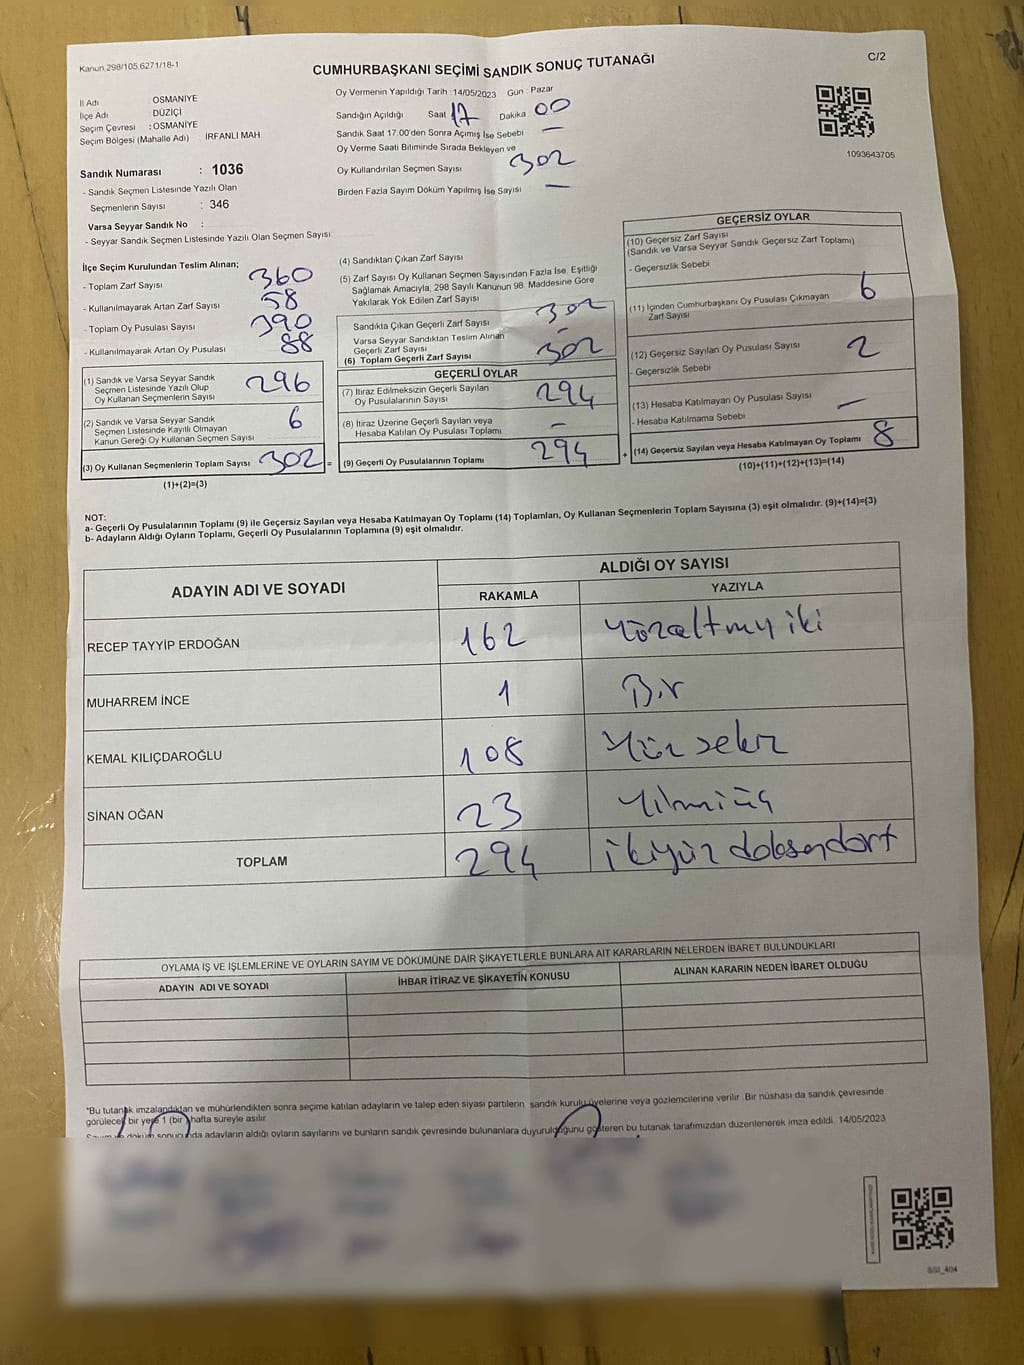 Kanun 298/105.6271/18-1
C/2
CUMHURBAŞKANI SEÇİMİ SANDIK SONUÇ TUTANAĞI
İl Adı OSMANİYE
İlçe Adı DÜZİÇİ
Seçim Çevresi : OSMANİYE
Seçim Bölgesi (Mahalle Adı) İRFANLI MAH
Sandık Numarası : 1036
- Sandık Seçmen Listesinde Yazılı Olan
Seçmenlerin Sayısı : 346
Varsa Seyyar Sandık No :
- Seyyar Sandık Seçmen Listesinde Yazılı Olan Seçmen Sayısı:
Oy Vermenin Yapıldığı Tarih : 14/05/2023 Gün : Pazar
Sandığın Açıldığı Saat 17 Dakika 00
Sandık Saat 17.00'den Sonra Açımış İse Sebebi —
Oy Verme Saati Bitiminde Sırada Bekleyen ve
Oy Kullandırılan Seçmen Sayısı 302
Birden Fazla Sayım Döküm Yapılmış İse Sayısı —
1093643705
İlçe Seçim Kurulundan Teslim Alınan;
- Toplam Zarf Sayısı 360
- Kullanılmayarak Artan Zarf Sayısı 58
- Toplam Oy Pusulası Sayısı 390
- Kullanılmayarak Artan Oy Pusulası 88
(1) Sandık ve Varsa Seyyar Sandık
Seçmen Listesinde Yazılı Olup
Oy Kullanan Seçmenlerin Sayısı 296
(2) Sandık ve Varsa Seyyar Sandık
Seçmen Listesinde Kayıtlı Olmayan
Kanun Gereği Oy Kullanan Seçmen Sayısı 6
(3) Oy Kullanan Seçmenlerin Toplam Sayısı 302 =
(1)+(2)=(3)
(4) Sandıktan Çıkan Zarf Sayısı
(5) Zarf Sayısı Oy Kullanan Seçmen Sayısından Fazla İse, Eşitliği
Sağlamak Amacıyla, 298 Sayılı Kanunun 98. Maddesine Göre
Yakılarak Yok Edilen Zarf Sayısı
Sandıkta Çıkan Geçerli Zarf Sayısı 302
Varsa Seyyar Sandıktan Teslim Alınan
Geçerli Zarf Sayısı –
(6) Toplam Geçerli Zarf Sayısı 302
GEÇERLİ OYLAR
(7) İtiraz Edilmeksizin Geçerli Sayılan
Oy Pusulalarının Sayısı 294
(8) İtiraz Üzerine Geçerli Sayılan veya
Hesaba Katılan Oy Pusulası Toplamı –
(9) Geçerli Oy Pusulalarının Toplamı 294 +
GEÇERSİZ OYLAR
(10) Geçersiz Zarf Sayısı
(Sandık ve Varsa Seyyar Sandık Geçersiz Zarf Toplamı)
- Geçersizlik Sebebi
(11) İçinden Cumhurbaşkanı Oy Pusulası Çıkmayan
Zarf Sayısı 6
(12) Geçersiz Sayılan Oy Pusulası Sayısı 2
- Geçersizlik Sebebi
(13) Hesaba Katılmayan Oy Pusulası Sayısı —
- Hesaba Katılmama Sebebi
(14) Geçersiz Sayılan veya Hesaba Katılmayan Oy Toplamı 8
(10)+(11)+(12)+(13)=(14)
NOT:
a- Geçerli Oy Pusulalarının Toplamı (9) ile Geçersiz Sayılan veya Hesaba Katılmayan Oy Toplamı (14) Toplamları, Oy Kullanan Seçmenlerin Toplam Sayısına (3) eşit olmalıdır. (9)+(14)=(3)
b- Adayların Aldığı Oyların Toplamı, Geçerli Oy Pusulalarının Toplamına (9) eşit olmalıdır.
ADAYIN ADI VE SOYADI ALDIĞI OY SAYISI
RAKAMLA YAZIYLA
RECEP TAYYİP ERDOĞAN 162 Yüzaltmış iki
MUHARREM İNCE 1 Bir
KEMAL KILIÇDAROĞLU 108 Yüz sekiz
SİNAN OĞAN 23 Yirmiüç
TOPLAM 294 ikiyüz doksandört
OYLAMA İŞ VE İŞLEMLERİNE VE OYLARIN SAYIM VE DÖKÜMÜNE DAİR ŞİKAYETLERLE BUNLARA AİT KARARLARIN NELERDEN İBARET BULUNDUKLARI
ADAYIN ADI VE SOYADI İHBAR İTİRAZ VE ŞİKAYETİN KONUSU ALINAN KARARIN NEDEN İBARET OLDUĞU
*Bu tutanak imzalandıktan ve mühürlendikten sonra seçime katılan adayların ve talep eden siyasi partilerin sandık kurulu üyelerine veya gözlemcilerine verilir. Bir nüshası da sandık çevresinde
görülecek bir yere 1 (bir) hafta süreyle asılır.
Sayım ve döküm sonucunda adayların aldığı oyların sayılarını ve bunların sandık çevresinde bulunanlara duyurulduğunu gösteren bu tutanak tarafımızdan düzenlenerek imza edildi. 14/05/2023
SSI_404